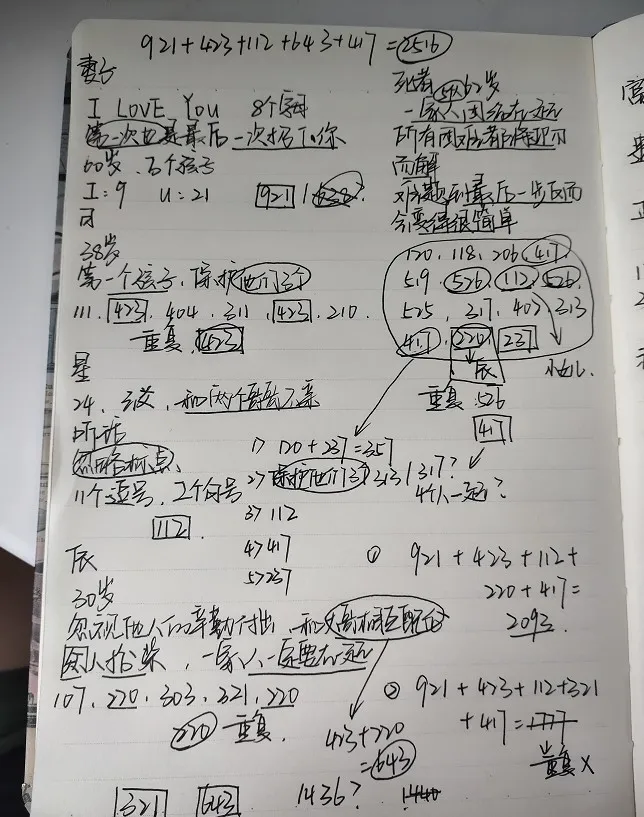 921+423+112+643+417=2516
妻子
I LOVE YOU 8个字母
第一次也是最后一次
60岁、3个孩子
I:9 U:21 921
日
38岁
第一个孩子,保护他们3个
111. 423. 404. 311. 423. 210.
重复 423
星
24.
听话
忽略标点、
11个逗号、2个句号
112
辰
30岁
忽视他人的辛勤付出
107. 220. 303. 321. 220
220 重复.
423+220
=643
321 643 1436? 1440
死者 62岁
一家人团结在一起
所有困难都将迎刃
而解
难题到最后一步反而
会变得很简单
120、118、206、417、
519、526、112、526、
525、317、402、313
417、220、237
辰
小女儿.
重复:526
417
1> 120+237=357
2> 保护他们3个 313/317?
4个人一起?
3> 112
4> 417
5> 237
① 921+423+112+
220+417=
2093.
② 921+423+112+321
+417=
重复X